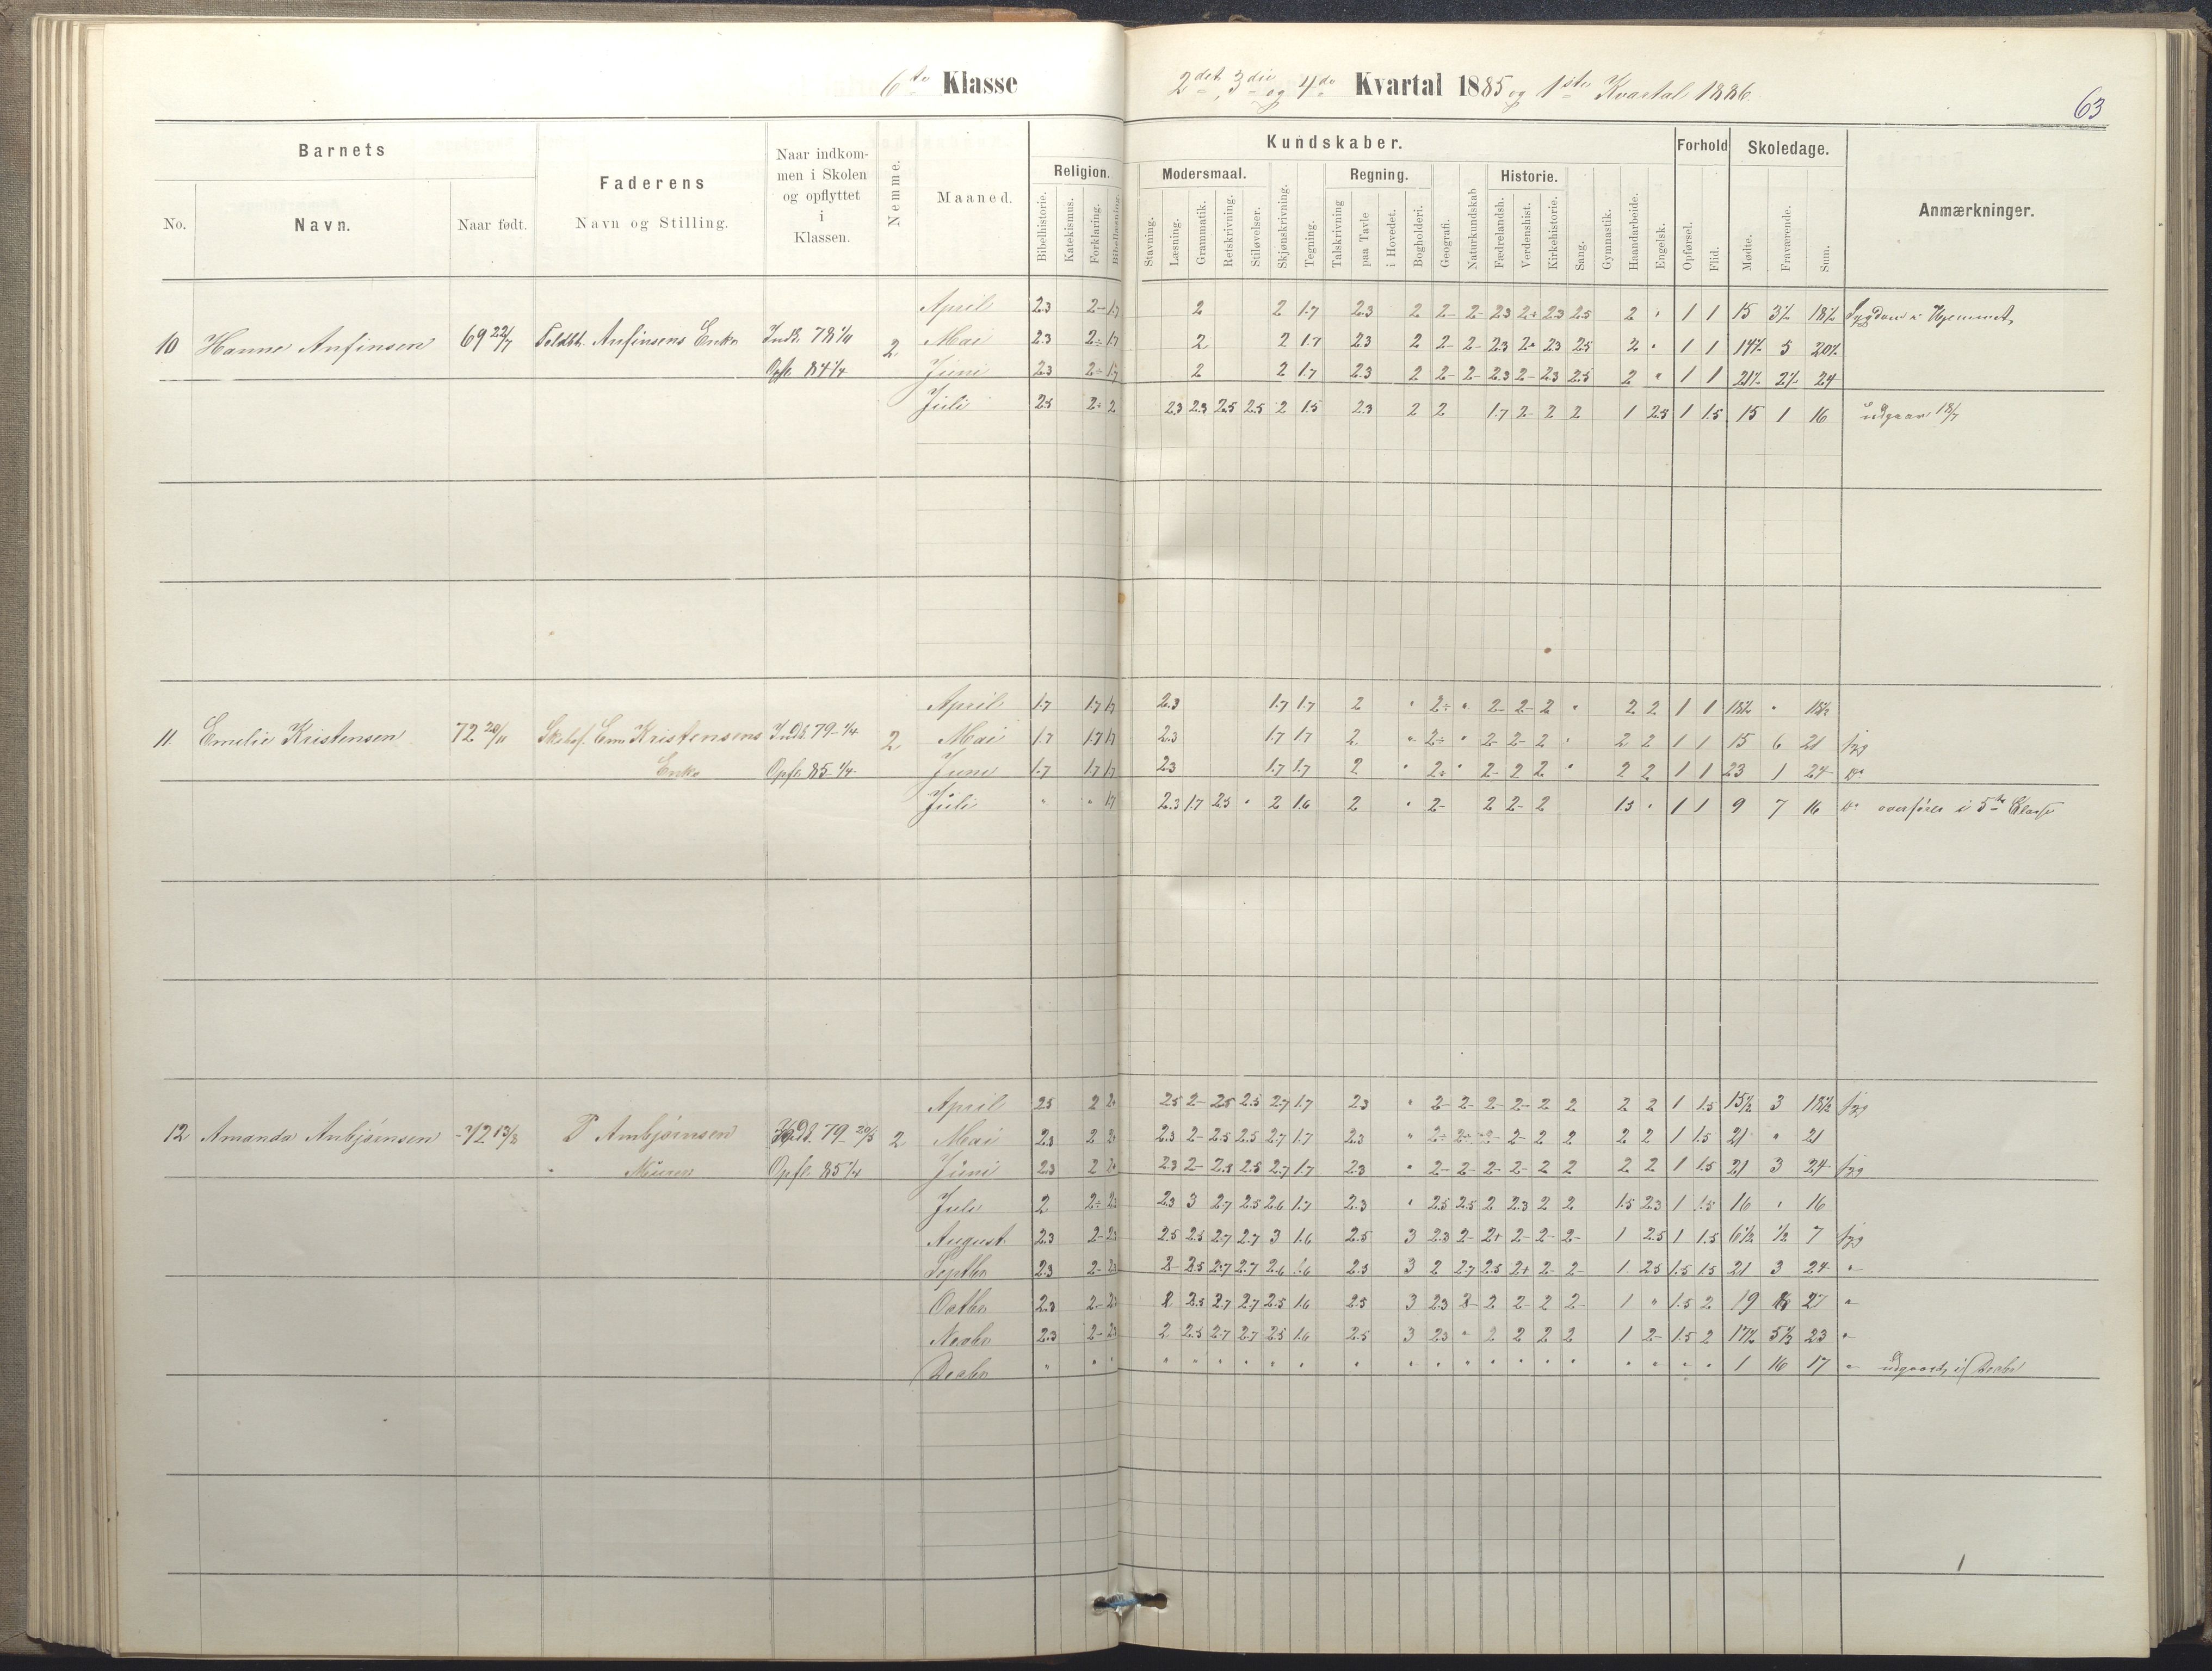 6te Klasse
2det, 3die og 4de Kvartal 1885 og 1ste Kvartal 1886.
63
Barnets
No. Navn. Naar født.
Faderens
Navn og Stilling.
Naar indkom-
men i Skolen
og opflyttet
i
Klassen.
Nemme.
Maaned.
Kundskaber.
Religion.
Bibelhistorie. Katekismus. Forklaring. Bibellæsning.
Modersmaal.
Stavning. Læsning. Grammatik. Retskrivning. Stiløvelser.
Skjønskrivning. Tegning.
Regning.
Talskrivning paa Tavle i Hovedet.
Bogholderi. Geografi. Naturkundskab
Historie.
Fædrelandsh. Verdenshist. Kirkehistorie.
Sang. Gymnastik. Haandarbeide. Engelsk.
Forhold
Opførsel. Flid.
Skoledage.
Mødte. Fraværende. Sum.
Anmærkninger.
April 2.3 2- 1.7 2 2 1.7 2.3 2 2- 2- 2.3 2÷ 2.3 2.5 2 " 1 1 15 3½ 18½ Sygdom i Hjemmet,
10 Hanne Anfinsen 69 22/7 Anfinsens Enke Inds. 78 2 Mai 2.3 2÷ 1.7 2 2 1.7 2.3 2 2- 2- 2.3 2- 2.3 2.5 2 " 1 1 14½ 5 20½
Opfl. 84 1/4 Juni 2.3 2÷ 1.7 2 2 1.7 2.3 2 2- 2- 2.3 2- 2.3 2.5 2 " 1 1 21½ 2½ 24
Juli 2.5 2÷ 2 2.3 2.3 2.5 2.5 2 1.5 2.3 2 2 1.7 2- 2 2 1 2.5 1 1.5 15 1 16 udgaar 18/7
April 1.7 1.7 1.7 2.3 1.7 1.7 2 " 2÷ " 2- 2- 2 " 2 2 1 1 18½ " 18½
11. Emilie Kristensen 72 20/11 Kristensens Inds. 79 1/4 2 Mai 1.7 1.7 1.7 2.3 1.7 1.7 2 " 2÷ " 2- 2- 2 " 2 2 1 1 15 6 21 syg
Enke Opfl. 85 1/4 Juni 1.7 1.7 1.7 2.3 1.7 1.7 2 " 2÷ " 2- 2 2 " 2 2 1 1 23 1 24 do
Juli " " 1.7 2.3 1.7 2.5 " 2 1.6 2 " 2- 2 2- 2 1.5 " 1 1 9 7 16 do overføres i 5te Classe
April 2.5 2 2÷ 2.5 2- 2.5 2.5 2.7 1.7 2.3 " 2- 2- 2- 2- 2 2 2 2 1 1.5 15½ 3 18½ syg
12 Amanda Anbjørnsen 72 13/8 P Anbjørnsen Inds. 79 20/5 2 Mai 2.3 2 2÷ 2.3 2- 2.5 2.5 2.7 1.7 2.3 " 2÷ 2÷ 2- 2- 2 2 2 2 1 1.5 21 " 21
Murer Opfl. 85 1/4 Juni 2.3 2 2÷ 2.3 2- 2.5 2.5 2.7 1.7 2.3 " 2- 2- 2- 2- 2 2 2 2 1 1.5 21 3 24 syg
Juli 2 2÷ 2.3 2.3 3 2.7 2.5 2.6 1.7 2.3 " 2.5 2.5 2 2.3 2 2 1.5 2.3 1 1.5 16 " 16
August 2.3 2- 2.3 2.5 2.5 2.7 2.7 3 1.6 2.5 3 2.3 2- 2+ 2- 2- 2- 1 2.5 1 1.5 6½ ½ 7 syg
Septbr 2.3 2- 2.3 2- 2.5 2.7 2.7 2.6 1.6 2.5 3 2 2.7 2.5 2+ 2- 2- 1 2.5 1.5 1.5 21 3 24 "
Octbr 2.3 2- 2.3 2 2.5 2.7 2.7 2.5 1.6 2.5 3 2.3 2- 2 2- 2 2- 1 " 1.5 2 19 8 27 "
Novbr 2.3 2- 2.3 2 2.5 2.7 2.7 2.5 1.6 2.5 3 2.3 " 2 2 2 2 1 2- 1.5 2 17½ 5½ 23 "
Decbr " " " " " " " " " " " " " " " " " " " " " 1 16 17 " udgaaet i Decbr
1